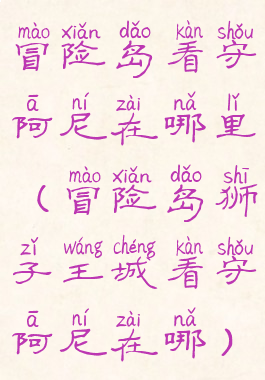 mào xiǎn dǎo kàn shǒu
冒险岛看守
ā ní zài nǎ lǐ
阿尼在哪里
mào xiǎn dǎo shī
（冒险岛狮
zǐ wáng chéng kàn shǒu
子王城看守
ā ní zài nǎ
阿尼在哪）